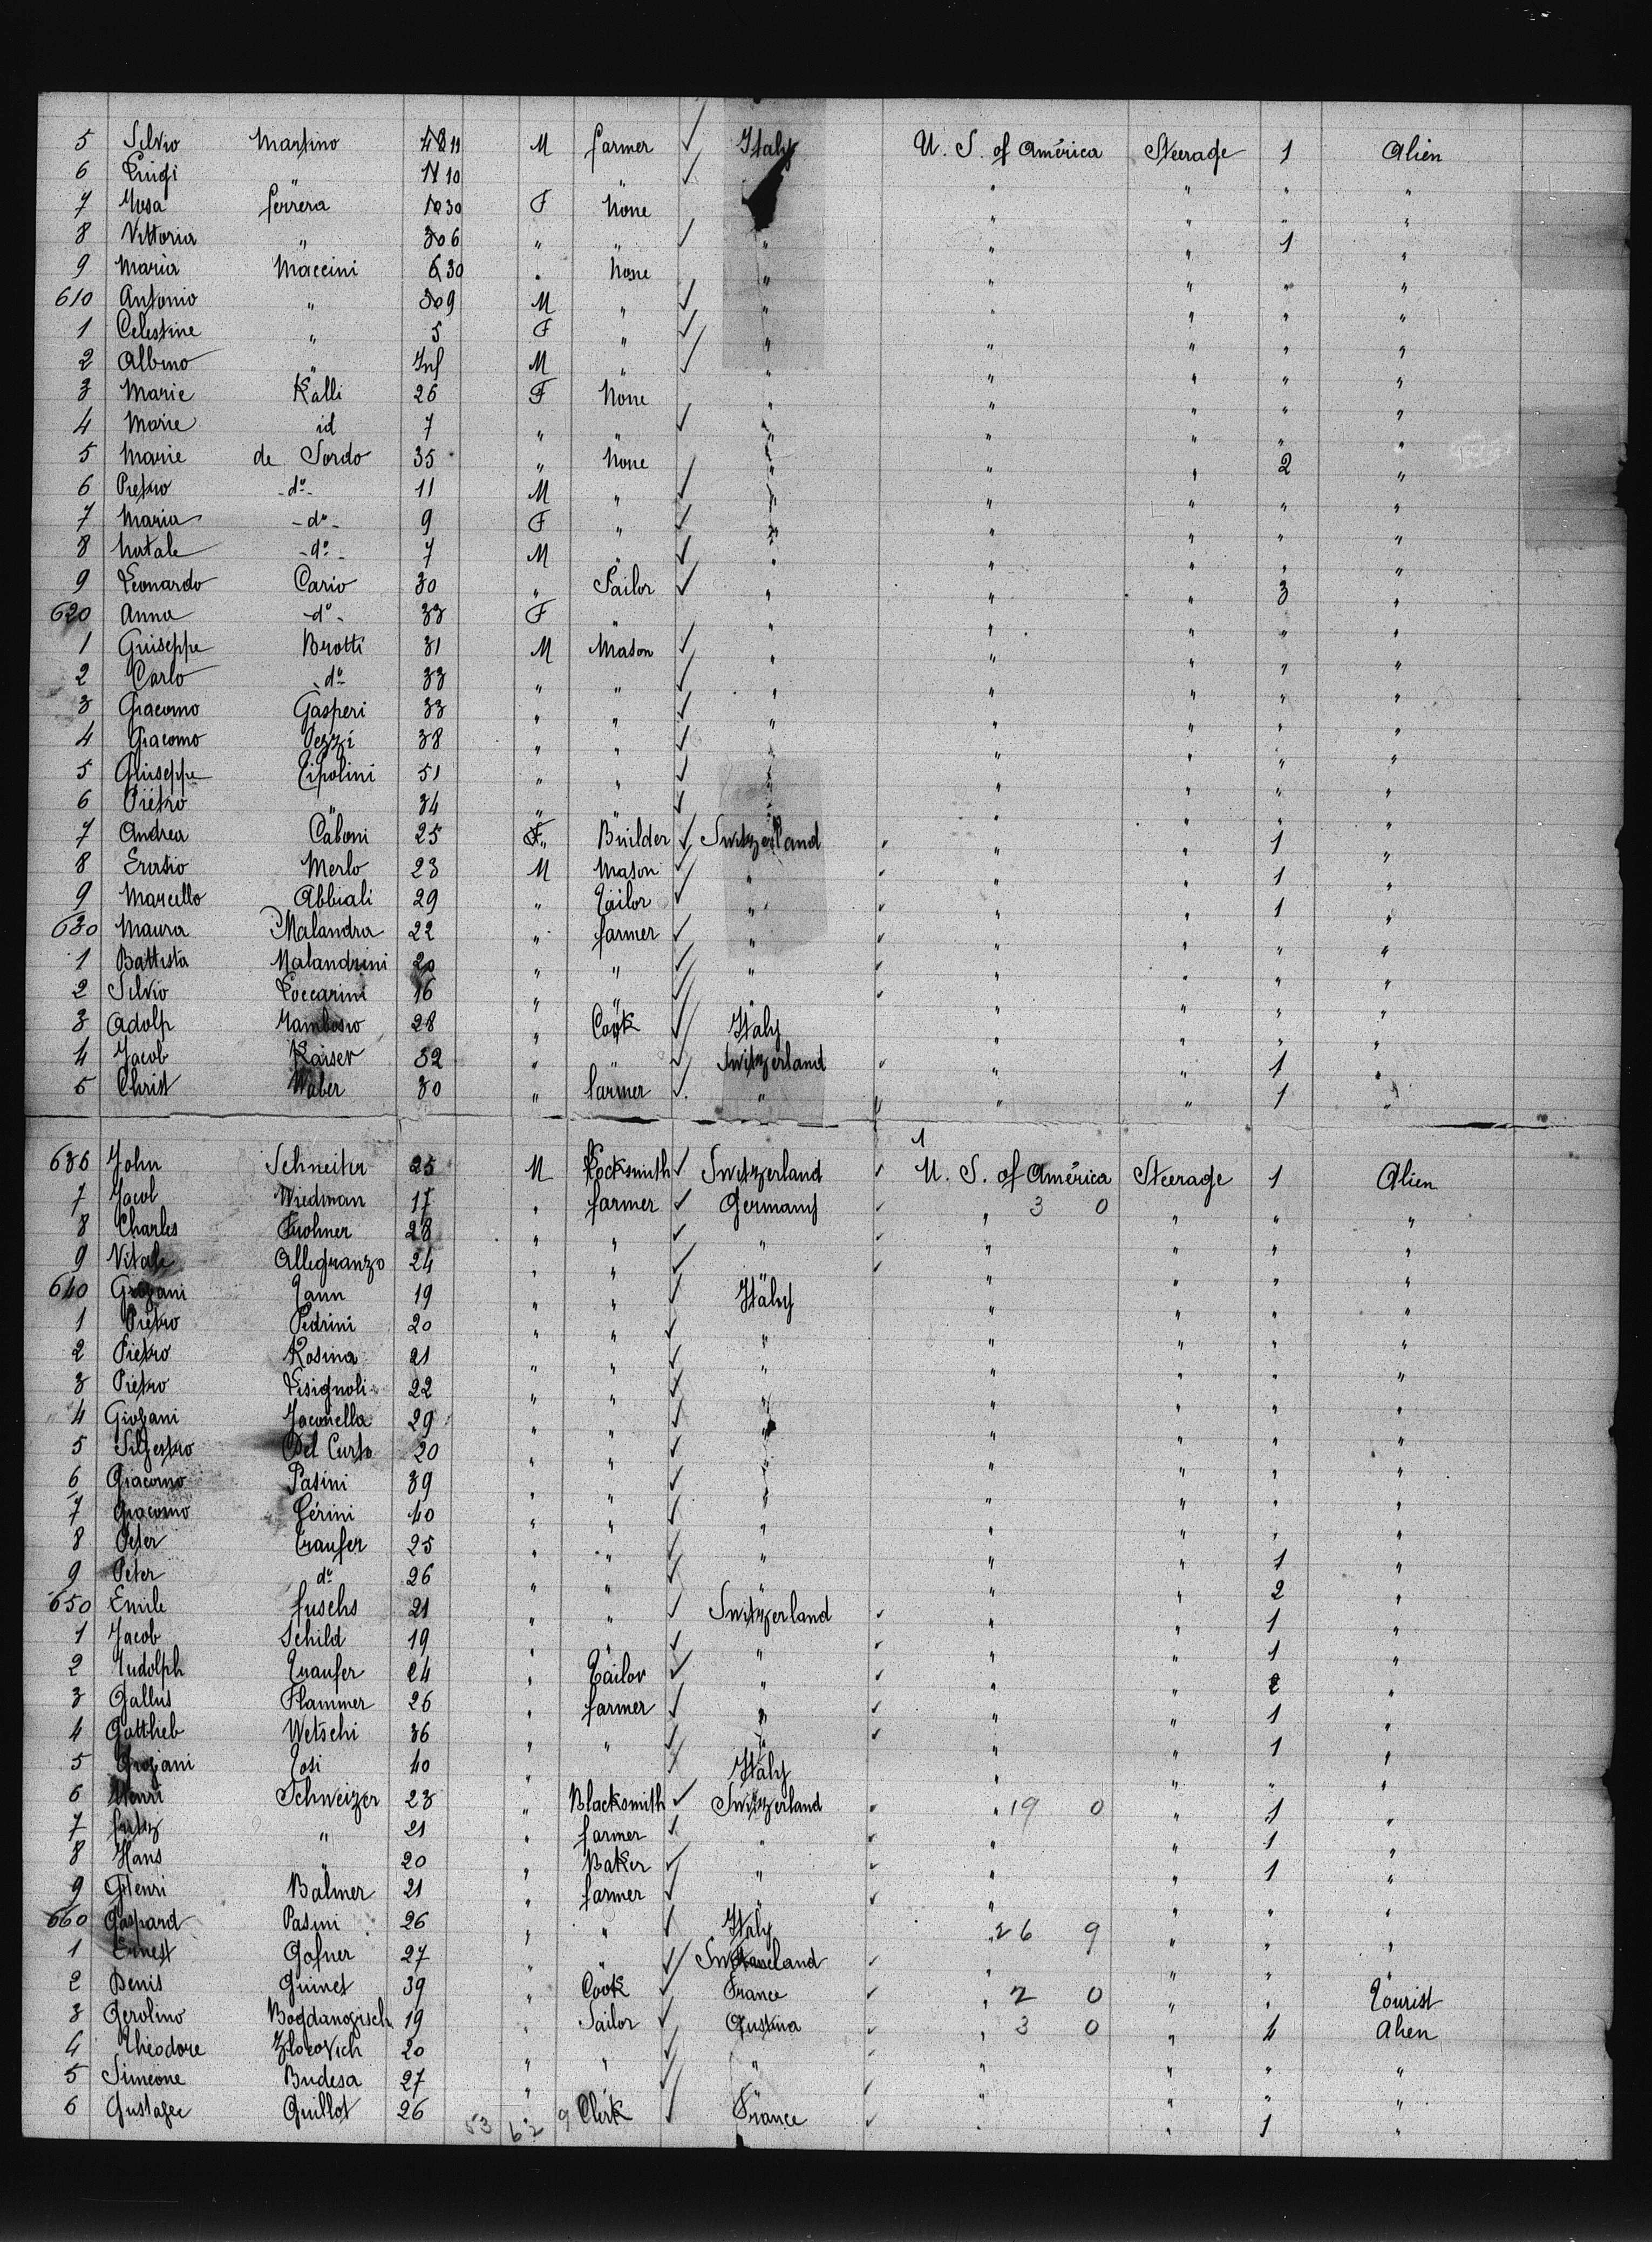 5 Silvio Martino 11 M farmer ✓ Italy U. S. of América Steerage 1 Alien
6 Luigi " 10 " ✓ " " " "
7 Rosa ferrera 30 F None " " " "
8 Vittoria " 6 " " ✓ " " " 1 "
9 Maria Maccini 30 " None " " " " "
610 Antonio " 9 M " ✓ " " " " "
1 Celestine " 5 F " ✓ " " " " "
2 Albino " Inf M " ✓ " " " " "
3 Marie Kalli 26 F None " " " " "
4 Marie id 7 " " ✓ " " " " "
5 Marie de Sordo 35 " None " " " 2 "
6 Pietro - do - 11 M " ✓ " " " " "
7 Maria - do - 9 F " ✓ " " " " "
8 Natale - do - 7 M " ✓ " " " " "
9 Leonardo Cario 30 " Sailor ✓ " " " 3 "
620 Anna - do - 33 F " " " " " "
1 Guiseppe Brotti 31 M Mason ✓ " " " " "
2 Carlo - do - 33 " " ✓ " " " " "
3 Giacomo Gasperi 33 " " ✓ " " " " "
4 Giacomo Pezzi 38 " " ✓ " " " " "
5 Giuseppe Cipolini 51 " " ✓ " " " " "
6 Pietro " 34 " " ✓ " " " " "
7 Andrea Caboni 25 " Builder ✓ Switzerland " " 1 "
8 Merlo 23 M Mason ✓ " " " 1 "
9 Marcello Abbiali 29 " Tailor ✓ " " " 1 "
630 Maura Malandra 22 " farmer ✓ " " " " "
1 Battista Malandrini 20 " " ✓ " " " " "
2 Silvio Loccarini 16 " " ✓ " " " " "
3 Adolp 28 " Cook ✓ Italy " " " "
4 Jacob Kaiser 32 " " ✓ Switzerland " " 1 "
5 Christ Waber 30 " farmer ✓ " " " 1 "
636 John Schneiter 25 M Locksmith ✓ Switzerland U. S. of América Steerage 1 Alien
7 Jacob Wiedman 17 " farmer ✓ Germany " 3 0 " " "
8 Charles 28 " " ✓ " " " " "
9 Vitale Allegranzo 24 " " ✓ " " " " "
640 Giovani 19 " " ✓ Italy " " " "
1 Pietro Pedrini 20 " " ✓ " " " " "
2 Pietro Rosina 21 " " ✓ " " " " "
3 Pietro Lisignoli 22 " " ✓ " " " " "
4 Giovani Jaconella 29 " " ✓ " " " " "
5 Silvestro Del Curto 20 " " ✓ " " " " "
6 Giacomo Pasini 39 " " ✓ " " " " "
7 Giacomo Gérini 40 " " ✓ " " " " "
8 Peter Traufer 25 " " ✓ " " " 1 "
9 Peter do 26 " " ✓ " " " 2 "
650 Emile fuschs 21 " " ✓ Switzerland " " 1 "
1 Jacob Schild 19 " " ✓ " " " 1 "
2 Rudolph Traufer 24 " Tailor ✓ " " " 2 "
3 Gallus Flammer 26 " farmer ✓ " " " 1 "
4 Gottlieb Wetschi 36 " " ✓ " " " 1 "
5 Giovani Tosi 40 " ✓ Italy " " " "
6 Henri Schweizer 23 " Blacksmith ✓ Switzerland " 19 0 " 1 "
7 fritz " 21 " farmer ✓ " " " 1 "
8 Hans " 20 " Baker ✓ " " " 1 "
9 Henri Balmer 21 " farmer ✓ " " " " "
660 Gaspard Pasini 26 " " ✓ Italy 26 9 " " "
1 Ernest Gafner 27 " " ✓ " " " "
2 Denis Guinet 39 " Cook ✓ France " 2 0 " " Tourist
3 Gerolino Bogdanovisch 19 " Sailor ✓ Austria " 3 0 " 4 Alien
4 Théodore Zlocovich 20 " " ✓ " " " " "
5 Simeone Budesa 27 " " ✓ " " " " "
6 Gustave Guillot 26 " Clerk ✓ France " " 1 "
53 62 9